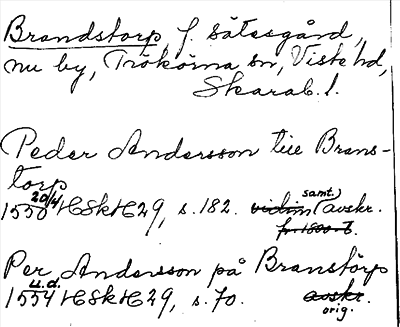 Brandstorp, f. sätesgård,
nu by, Trökörna sn, Viste hd,
Skarab. l.
Peder Andersson till Brans-
torp
1550 20/4 HSkH 29, s. 182. vidim (samt.) avskr.
fr. 1800-t.
Per Andersson på Branstörp
1554 u.d. HSkH 29, s. 70. avskr.
orig.